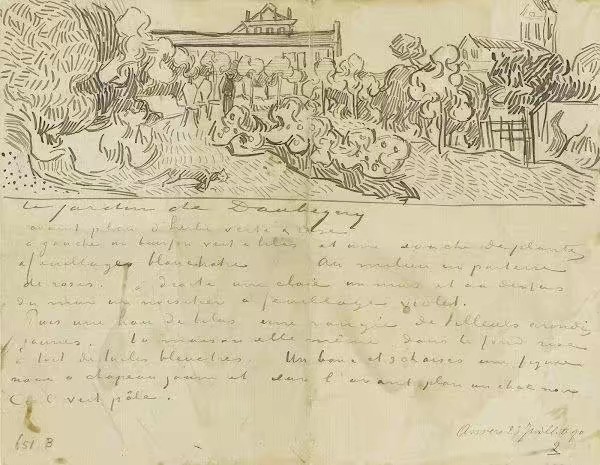 Le jardin de Daubigny
avant plan d'herbe verte & rose
à gauche un buisson vert & lilas et une souche de plantes
à feuillages blanchatre Au milieu un parterre
de roses. à droite une claie un mur et au dessus
du mur un noisetier à feuillage violet.
Puis une haie de lilas une rangée de tilleuls arrondis
jaunes. La maison elle même dans le fond rose
à toit de tuiles bleuatres. Un banc et 3 chaises une figure
noire à chapeau jaune et sur l'avant plan un chat noir
Ciel vert pâle.
Auvers 23 Juillet 90
651 B
2